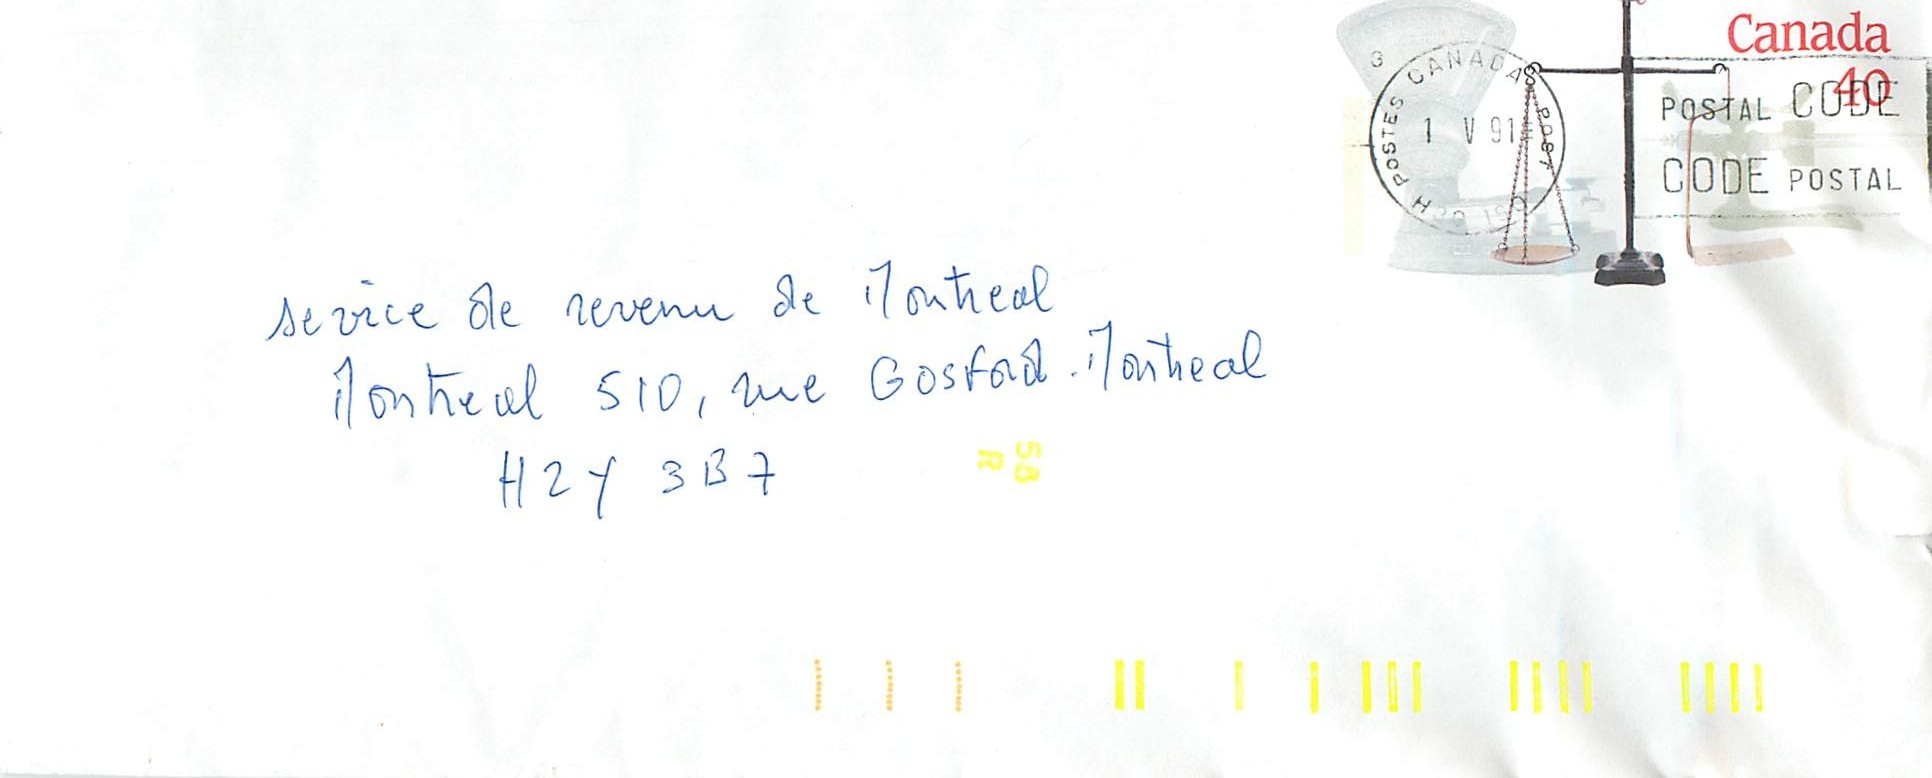 Canada
40
POSTES CANADA POST
1 V 91
POSTAL CODE
CODE POSTAL
Service de revenu de Montreal
Montreal 510, rue Gosford. Montreal
H2Y 3B7
58
R